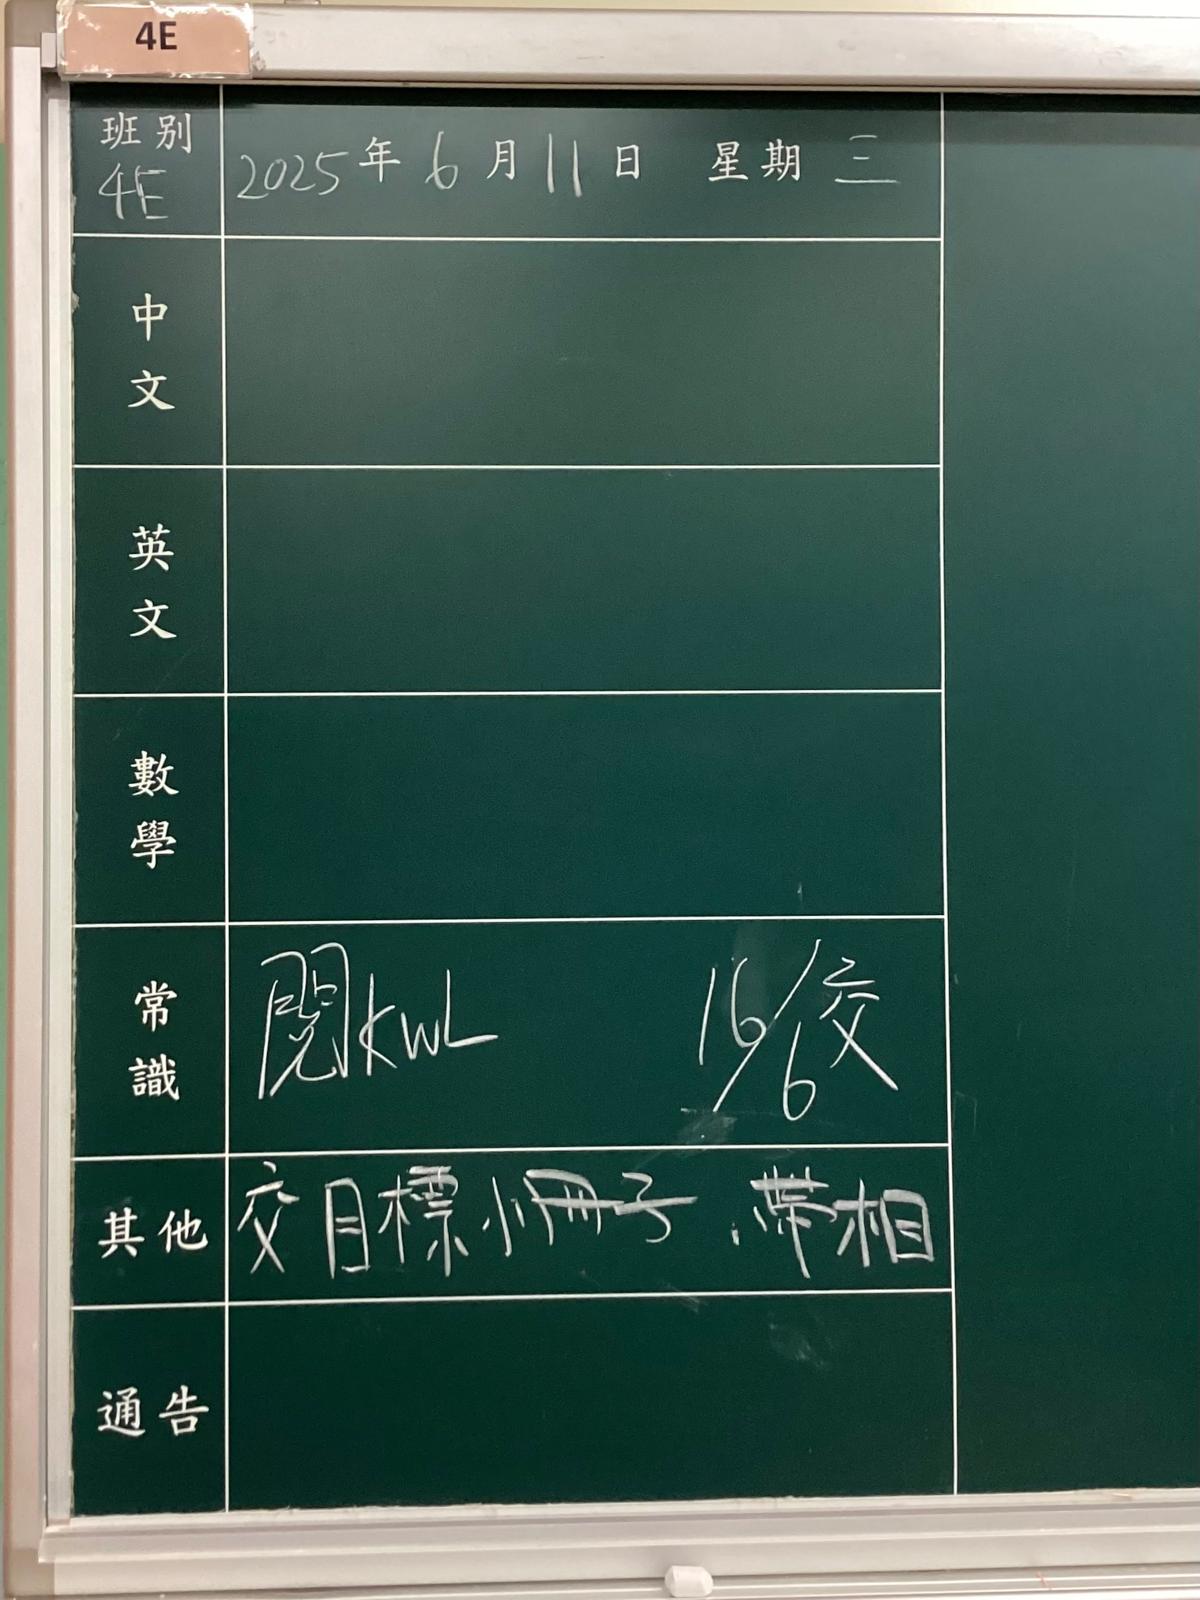 4E
班別
4E
2025年6月11日 星期三
中文
英文
數學
常識
閱KWL 16/6交
其他
交目標小冊子、帶相
通告